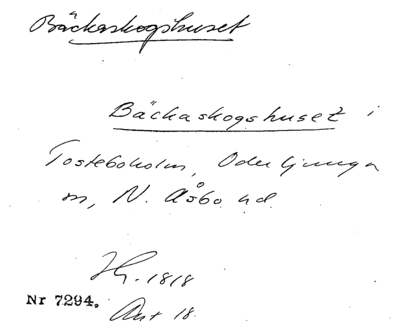 Bäckaskogshuset
Bäckaskogshuset i
Tosteboholm, Oderljunga
sn, N. Åsbo hd.
Hf. 1818
Nr 7294. Ant 18.